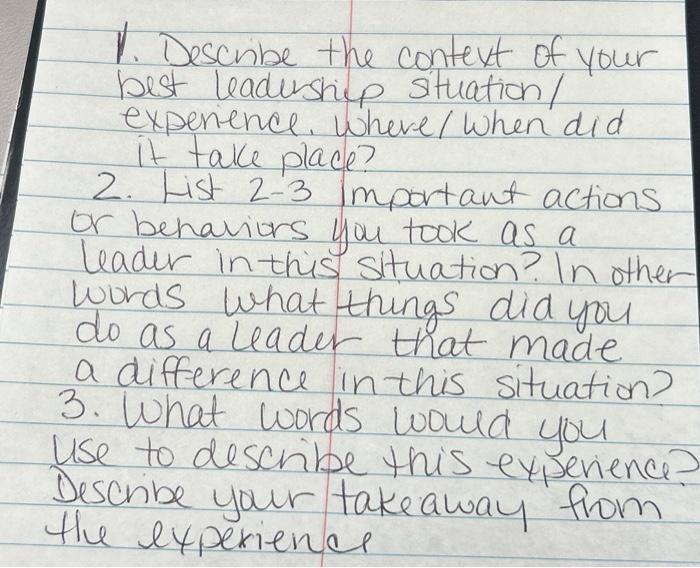 1. Describe the context of your
best leadership situation/
experience. Where/When did
it take place?
2. List 2-3 important actions
or behaviors you took as a
leader in this situation? In other
words what things did you
do as a leader that made
a difference in this situation?
3. What words would you
use to describe this experience?
Describe your takeaway from
the experience